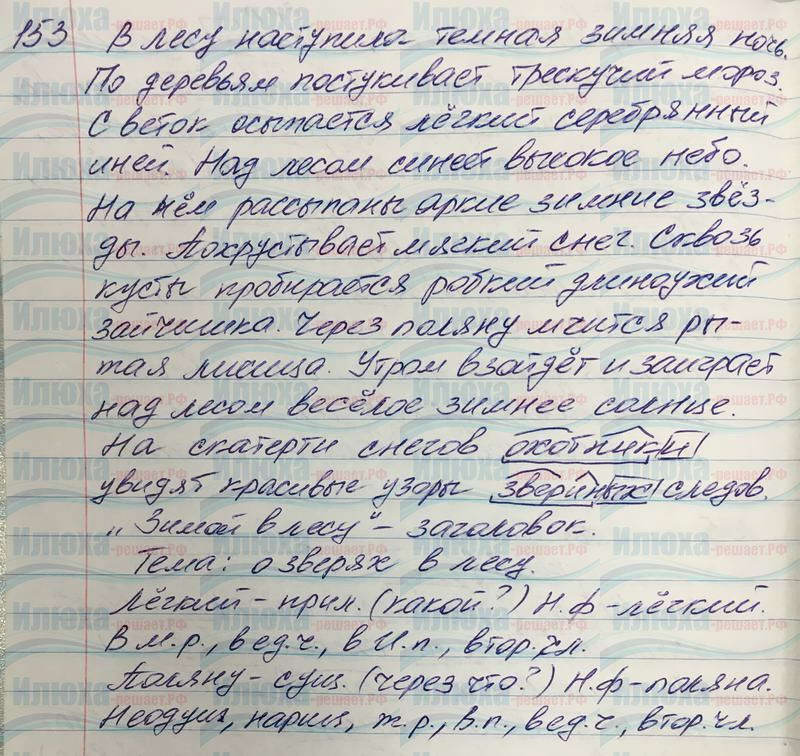 153 В лесу наступила темная зимняя ночь.
По деревьям постукивает трескучий мороз.
С веток осыпается лёгкий серебрянный
иней. Над лесом синеет высокое небо.
На нём рассыпаны яркие зимние звёз-
ды. Похрустывает мягкий снег. Сквозь
кусты пробирается робкий длиноухий
зайчишка. Через поляну мчится ры-
жая лисица. Утром взойдёт и заиграет
над лесом весёлое зимнее солнце.
На скатерти снегов охотники
увидят красивые узоры звериных следов.
„Зимой в лесу“ – заголовок.
Тема: о зверях в лесу.
Лёгкий – прил. (какой?) Н.ф – лёгкий.
В м.р., в ед.ч., в И.п., втор. чл.
Поляну – сущ. (через что?) Н.ф – поляна.
Неодуш, нариц, ж.р., В.п., в ед.ч., втор. чл.
Илюха-решает.РФ